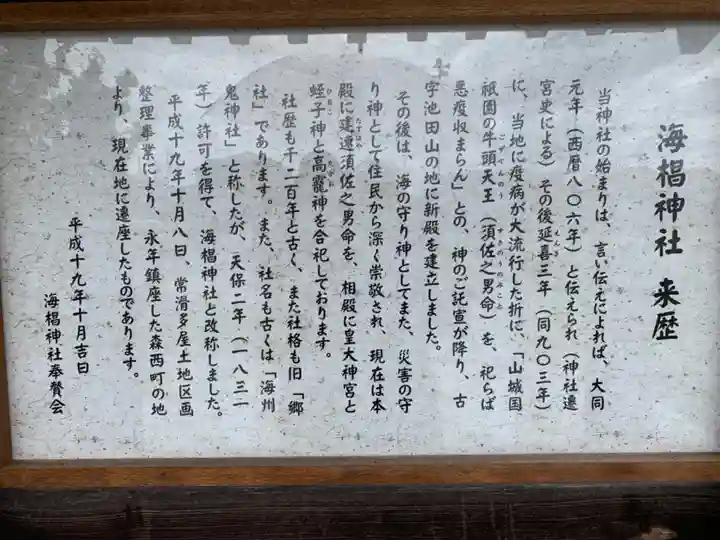 海椙神社 来歴
当神社の始まりは、言い伝えによれば、大同
元年(西暦八〇六年)と伝えられ(神社遷
宮史による)その後延喜三年(同九〇三年)
に、当地に疫病が大流行した折に、「山城国
祇園の牛頭天王(須佐之男命)を、祀らば
悪疫収まらん」との、神のご託宣が降り、古
字池田山の地に新殿を建立しました。
その後は、海の守り神としてまた、災害の守
り神として住民から深く崇敬され、現在は本
殿に建速須佐之男命を、相殿に皇大神宮と
蛭子神と高龗神を合祀しております。
社歴も千二百年と古く、また社格も旧「郷
社」であります。また、社名も古くは「海州
鬼神社」と称したが、天保二年(一八三一
年)許可を得て、海椙神社と改称しました。
平成十九年十月八日、常滑多屋土地区画
整理事業により、永年鎮座した森西町の地
より、現在地に遷座したものであります。
平成十九年十月吉日
海椙神社奉賛会